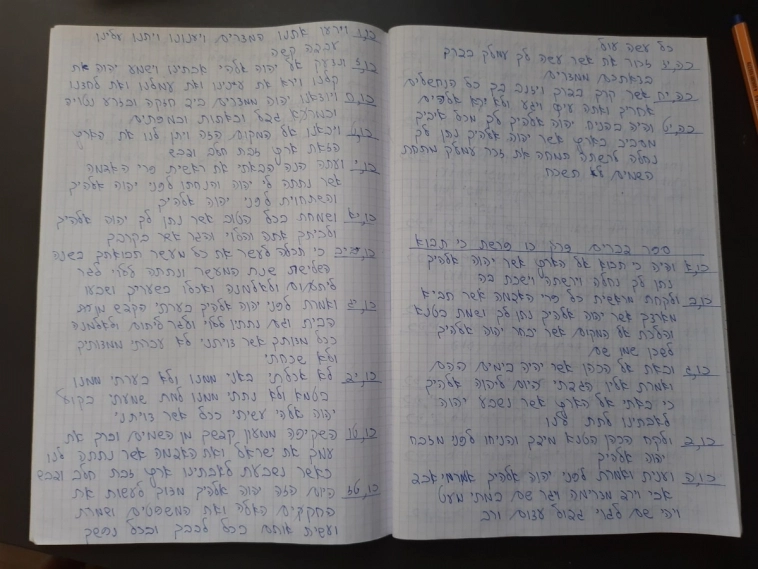 כל עשה עול
כה,יז זכור את אשר עשה לך עמלק בדרך
בצאתכם ממצרים
כה,יח אשר קרך בדרך ויזנב בך כל הנחשלים
אחריך ואתה עיף ויגע ולא ירא אלהים
כה,יט והיה בהניח יהוה אלהיך לך מכל איביך
מסביב בארץ אשר יהוה אלהיך נתן לך
נחלה לרשתה תמחה את זכר עמלק מתחת
השמים לא תשכח
ספר דברים פרק כו פרשת כי תבוא
כו,א והיה כי תבוא אל הארץ אשר יהוה אלהיך
נתן לך נחלה וירשתה וישבת בה
כו,ב ולקחת מראשית כל פרי האדמה אשר תביא
מארצך אשר יהוה אלהיך נתן לך ושמת בטנא
והלכת אל המקום אשר יבחר יהוה אלהיך
לשכן שמו שם
כו,ג ובאת אל הכהן אשר יהיה בימים ההם
ואמרת אליו הגדתי היום ליהוה אלהיך
כי באתי אל הארץ אשר נשבע יהוה
לאבתינו לתת לנו
כו,ד ולקח הכהן הטנא מידך והניחו לפני מזבח
יהוה אלהיך
כו,ה וענית ואמרת לפני יהוה אלהיך ארמי אבד
אבי וירד מצרימה ויגר שם במתי מעט
ויהי שם לגוי גדול עצום ורב
כו,ו וירעו אתנו המצרים ויענונו ויתנו עלינו
עבדה קשה
כו,ז ונצעק אל יהוה אלהי אבתינו וישמע יהוה את
קלנו וירא את ענינו ואת עמלנו ואת לחצנו
כו,ח ויוצאנו יהוה ממצרים ביד חזקה ובזרע נטויה
ובמרא גדל ובאתות ובמפתים
כו,ט ויבאנו אל המקום הזה ויתן לנו את הארץ
הזאת ארץ זבת חלב ודבש
כו,י ועתה הנה הבאתי את ראשית פרי האדמה
אשר נתתה לי יהוה והנחתו לפני יהוה אלהיך
והשתחוית לפני יהוה אלהיך
כו,יא ושמחת בכל הטוב אשר נתן לך יהוה אלהיך
ולביתך אתה והלוי והגר אשר בקרבך
כו,יב כי תכלה לעשר את כל מעשר תבואתך בשנה
השלישת שנת המעשר ונתתה ללוי לגר
ליתום ולאלמנה ואכלו בשעריך ושבעו
כו,יג ואמרת לפני יהוה אלהיך בערתי הקדש מן
הבית וגם נתתיו ללוי ולגר ליתום ולאלמנה
ככל מצותך אשר צויתני לא עברתי ממצותיך
ולא שכחתי
כו,יד לא אכלתי באני ממנו ולא בערתי ממנו
בטמא ולא נתתי ממנו למת שמעתי בקול
יהוה אלהי עשיתי ככל אשר צויתני
כו,טו השקיפה ממעון קדשך מן השמים וברך את
עמך את ישראל ואת האדמה אשר נתתה לנו
כאשר נשבעת לאבתינו ארץ זבת חלב ודבש
כו,טז היום הזה יהוה אלהיך מצוך לעשות את
החקקים האלה ואת המשפטים ושמרת
ועשית אותם בכל לבבך ובכל נפשך